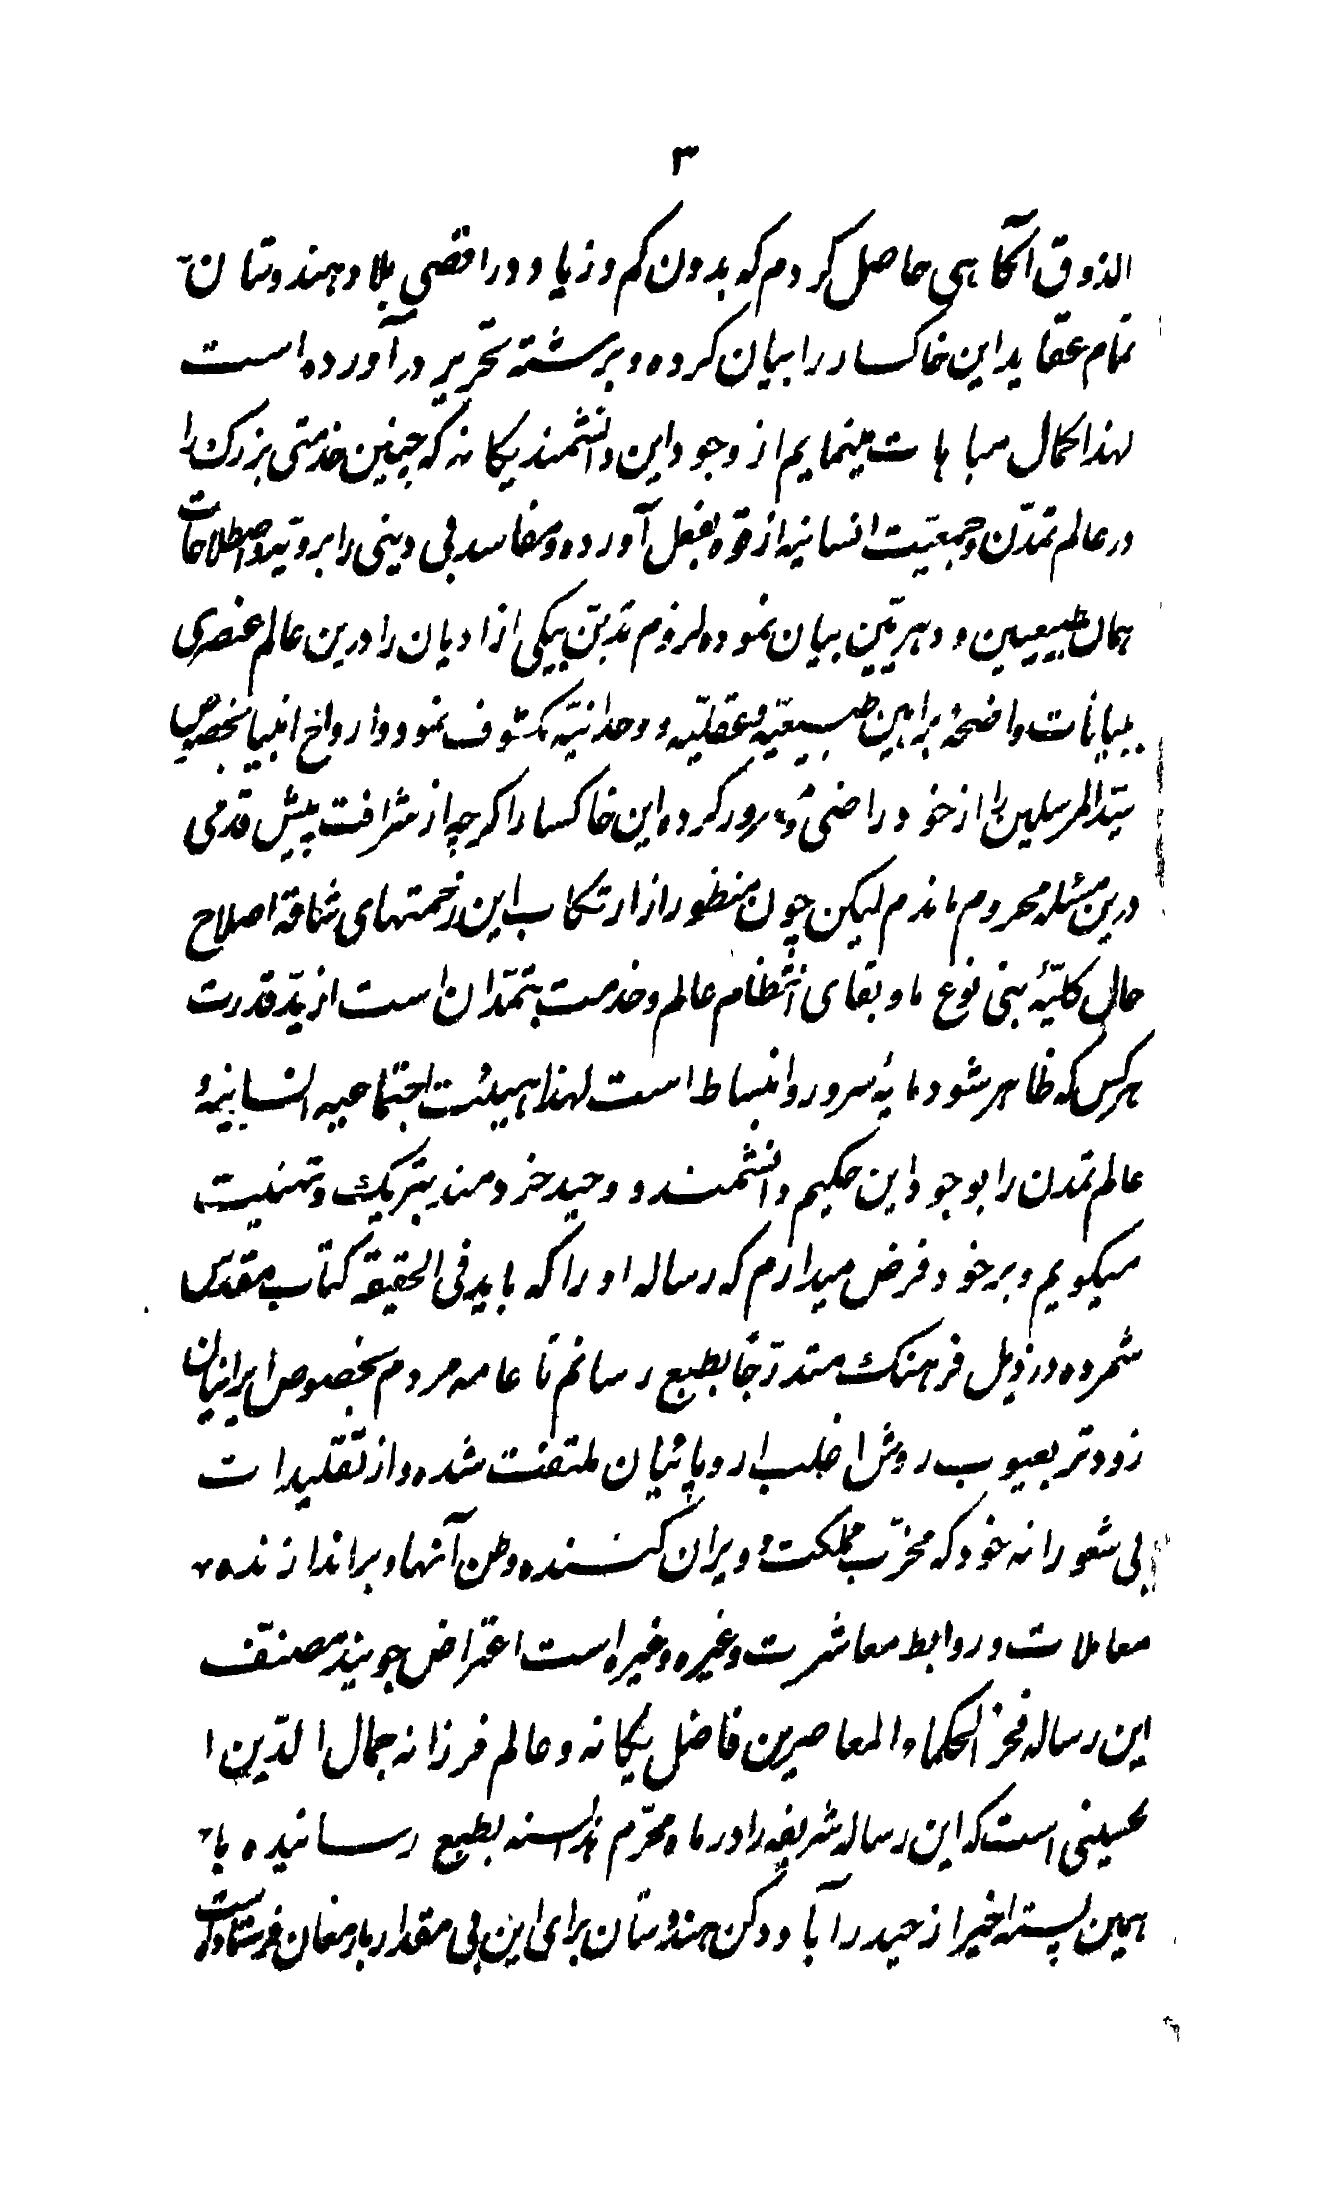 ۳
الذوق آگاهی حاصل کردم که بدون کم و زیاد در اقصی بلاد هندوستان
تمام عقاید این خاکسار را بیان کرده و برشته تحریر در آورده است
لهذا کمال مباهات مینمایم از وجود این دانشمند یکانه که چنین خدمتی بزرک را
در عالم تمدّن و جمعیّت انسانیه از قوه بفعل آورده و مفاسد بی دینی را برویّه و اصطلاحات
همان طبیعیین و دهریّین بیان نموده لزوم تدیّن بیکی از ادیان را درین عالم عنصری
ببیانات واضحهٔ براهین طبیعیّه و عقلیّه و وحدانیّه مکشوف نمود و ارواح انبیا بخصوص
سیّد المرسلین را از خود راضی و مسرور کرده این خاکسار اکر چه از شرافت پیش قدمی
درین مسئله محروم ماندم لیکن چون منظور از ارتکاب این زحمتهای شاقه اصلاح
حال کلیّهٔ بنی نوع ما و بقای انتظام عالم و خدمت بتمدّن است از ید قدرت
هر کس که ظاهر شود مایهٔ سرور و انبساط است لهذا هیئت اجتماعیه انسانیهٔ
عالم تمدن را بوجود این حکیم دانشمند و وحید خردمند تبریک و تهنیت
میکویم و بر خود فرض میدارم که رساله او را که باید فی الحقیقه کتاب مقدس
شمرده در ذیل فرهنک متدرّجاً بطبع رسانم تا عامه مردم بخصوص ایرانیان
زودتر بعیوب روش اغلب اروپائیان ملتفت شده و از تقلیدات
بی شعورانه خود که مخرّب مملکت و ویران کننده وطن آنها و براندازنده
معاملات و روابط معاشرت و غیره و غیره است اعتراض جویند مصنّف
این رساله فخر الحکماء المعاصرین فاضل یکانه و عالم فرزانه جمال الدّین ا
لحسینی است که این رساله شریفه را در ماه محرّم هذه السنه بطبع رسانیده با
همین پسته اخیر از حیدرآباد دکن هندوستان برای این بی مقدار بارمغان فرستاده است